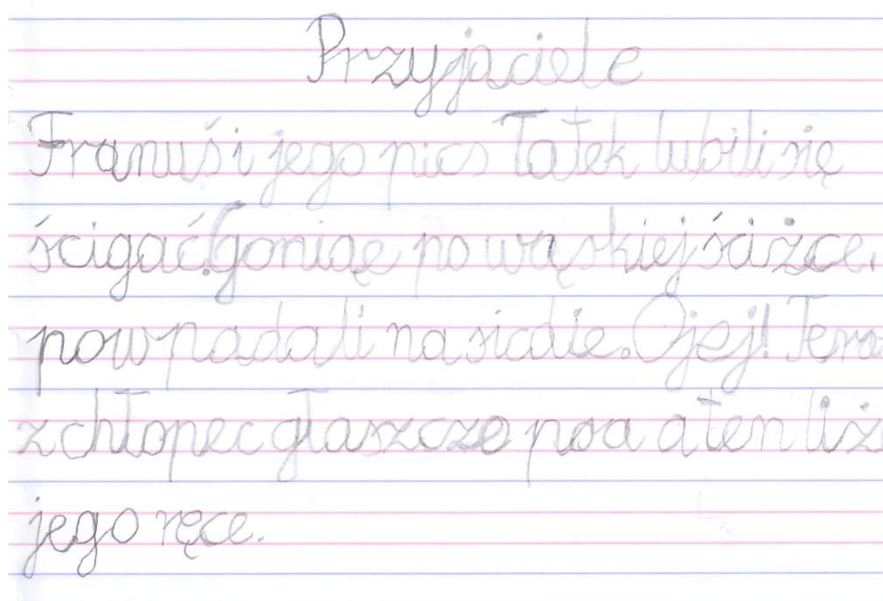 Przyjaciele
Franuś i jego pies Tatek lubili się
ścigać. Goniąc po wąskiej ściżce.
powpadali na siebie. Ojej! Tera
z chłopec głaszcze psa a ten liż
jego ręce.